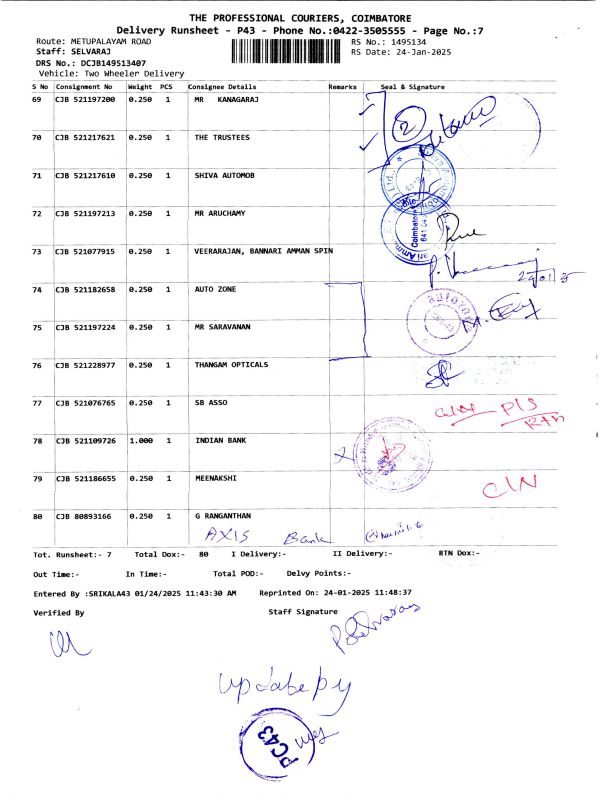 THE PROFESSIONAL COURIERS, COIMBATORE
Delivery Runsheet - P43 - Phone No.:0422-3505555 - Page No.:7
Route: METUPALAYAM ROAD RS No.: 1495134
Staff: SELVARAJ RS Date: 24-Jan-2025
DRS No.: DCJB149513407
Vehicle: Two Wheeler Delivery
S No Consignment No Weight PCS Consignee Details Remarks Seal & Signature
69 CJB 521197200 0.250 1 MR KANAGARAJ
70 CJB 521217621 0.250 1 THE TRUSTEES
71 CJB 521217610 0.250 1 SHIVA AUTOMOB
72 CJB 521197213 0.250 1 MR ARUCHAMY
73 CJB 521077915 0.250 1 VEERARAJAN, BANNARI AMMAN SPIN
24/01/25
74 CJB 521182658 0.250 1 AUTO ZONE
75 CJB 521197224 0.250 1 MR SARAVANAN
76 CJB 521228977 0.250 1 THANGAM OPTICALS
77 CJB 521076765 0.250 1 SB ASSO
78 CJB 521109726 1.000 1 INDIAN BANK
79 CJB 521186655 0.250 1 MEENAKSHI
80 CJB 80893166 0.250 1 G RANGANTHAN
AXIS Bank
Tot. Runsheet:- 7 Total Dox:- 80 I Delivery:- II Delivery:- RTN Dox:-
Out Time:- In Time:- Total POD:- Delvy Points:-
Entered By :SRIKALA43 01/24/2025 11:43:30 AM Reprinted On: 24-01-2025 11:48:37
Verified By Staff Signature
PC43